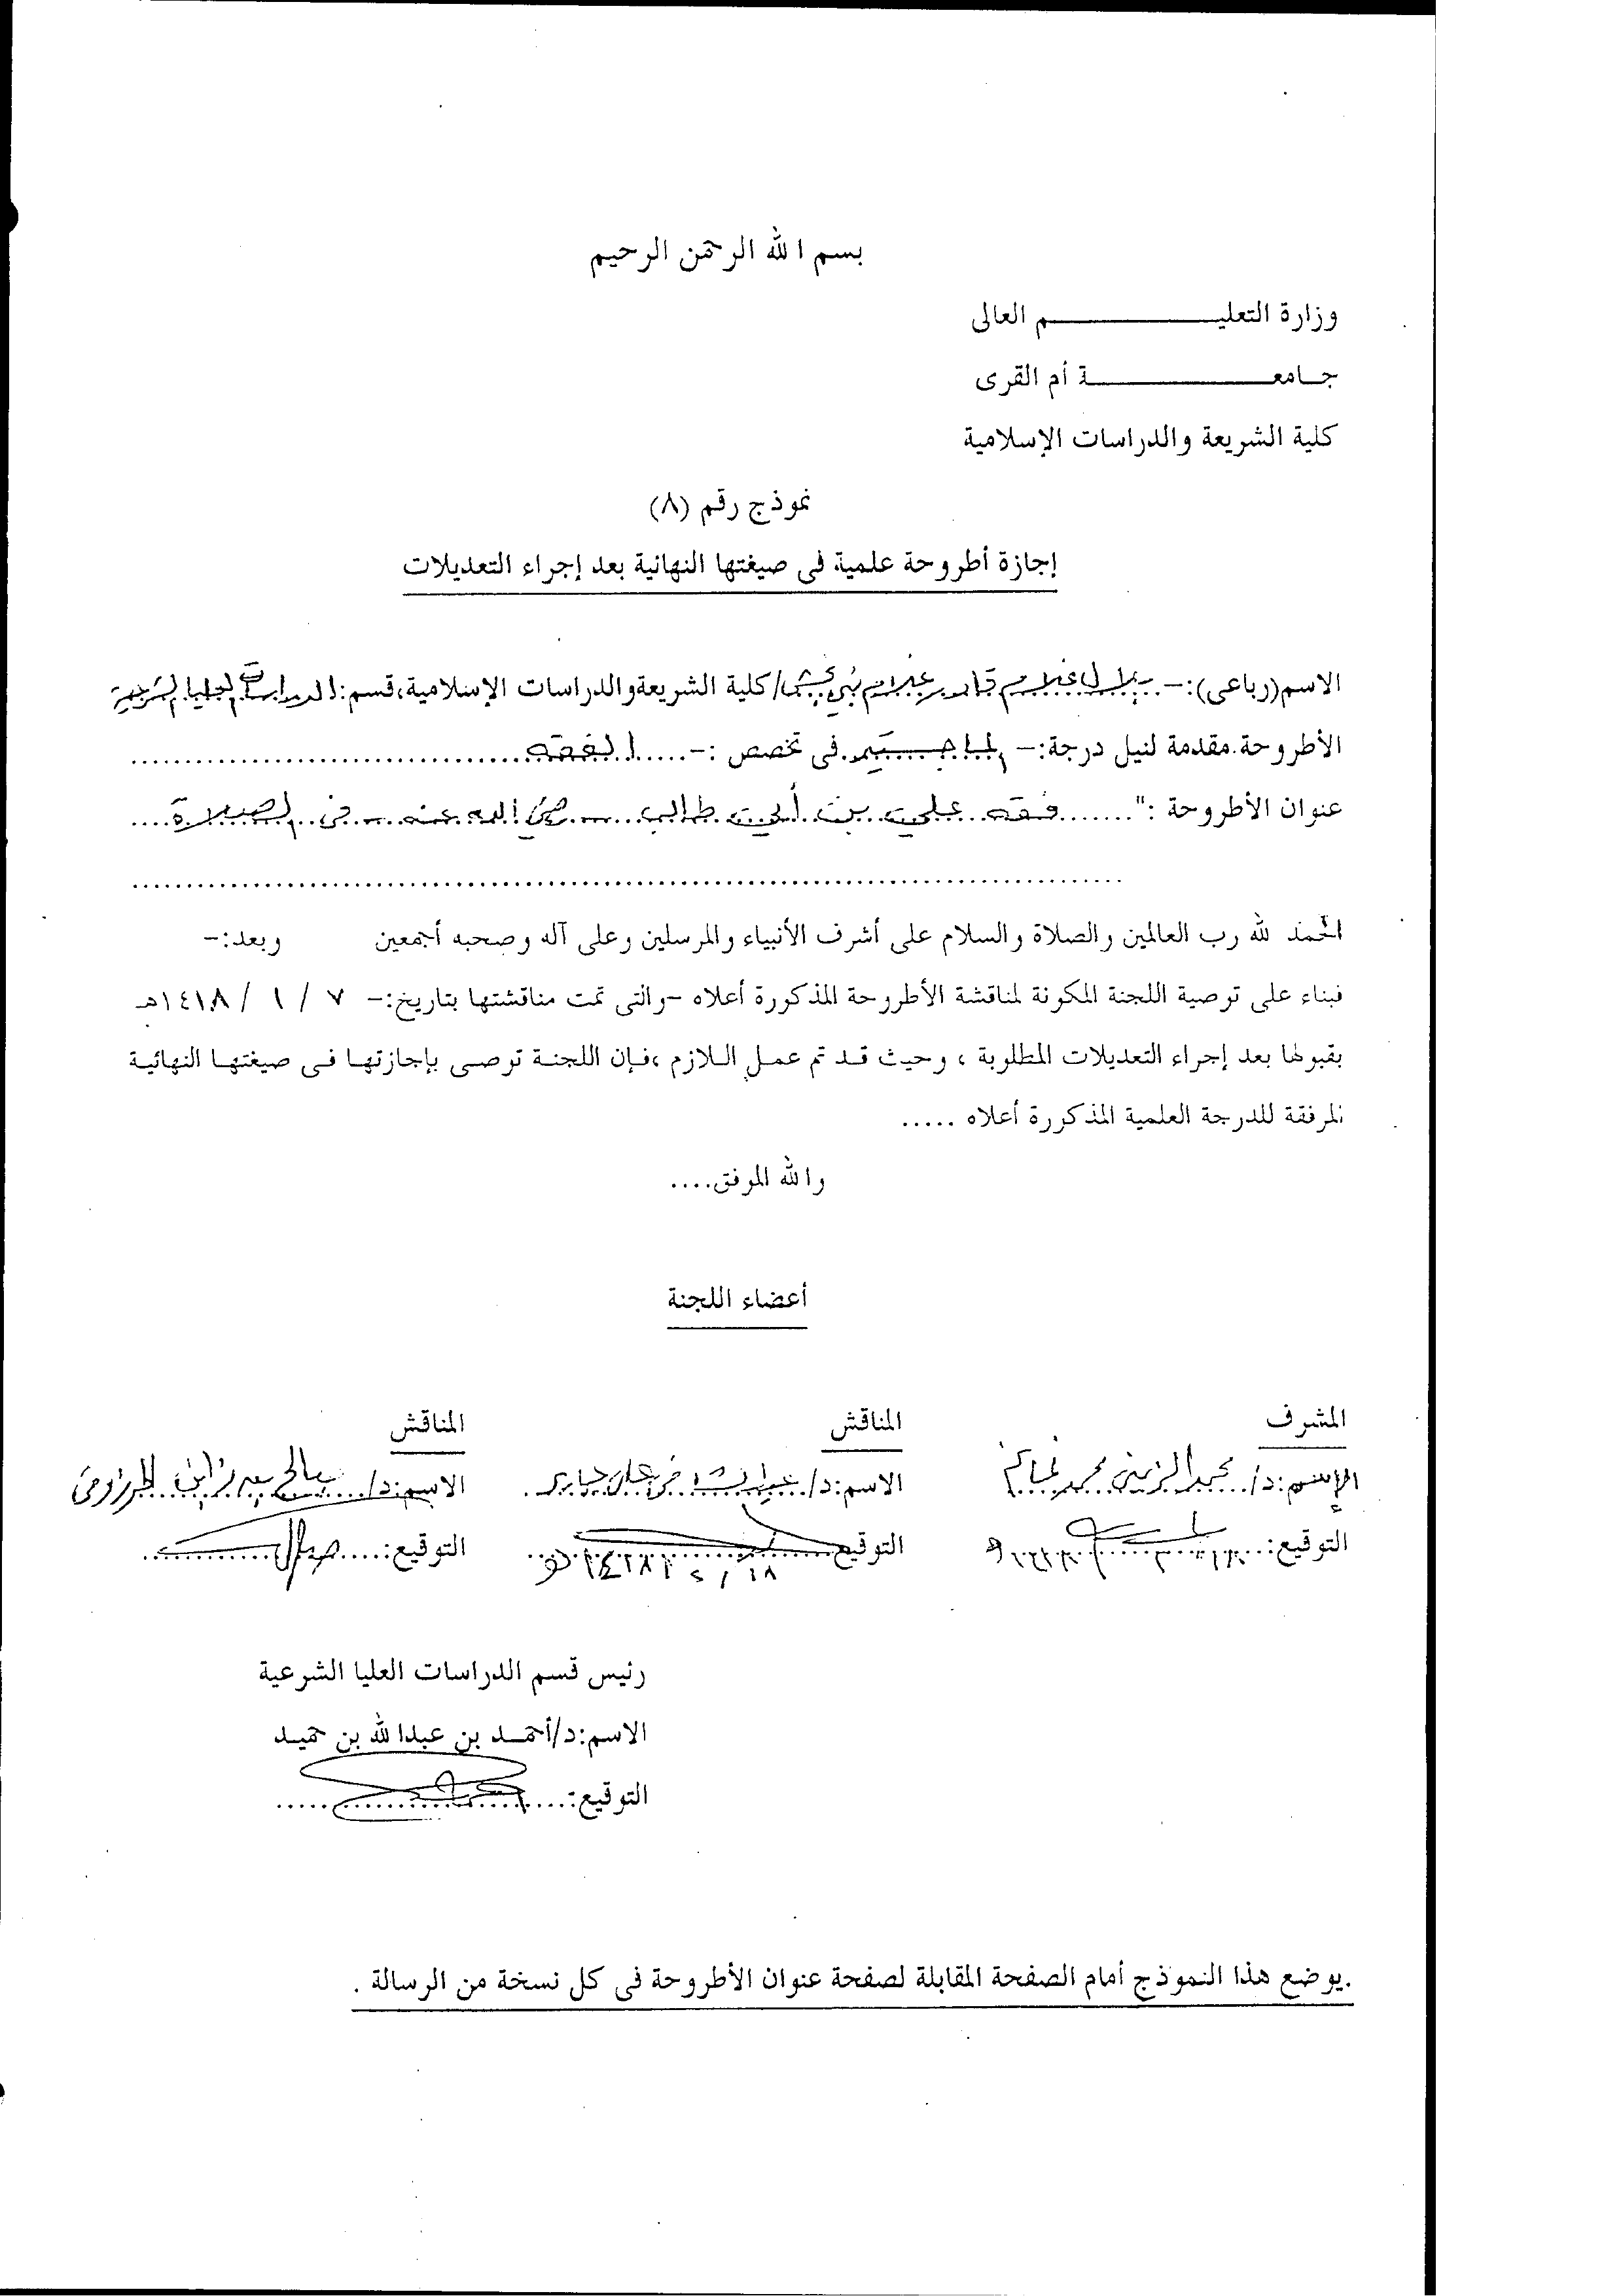 بسم الله الرحمن الرحيم
وزارة التعليـــــــــــــم العالى
جـامعـــــــــــــة أم القرى
كلية الشريعة والدراسات الإسلامية
نموذج رقم (٨)
إجازة أطروحة علمية فى صيغتها النهائية بعد إجراء التعديلات
الاسم(رباعى):- غلام قادر غلام نبي /كلية الشريعة والدراسات الإسلامية،قسم:الدراسات العليا الشرعية
الأطروحة مقدمة لنيل درجة:- الماجستير فى تخصص :-.....الفقه....................................
عنوان الأطروحة :"......فقه علي بن أبي طالب - رضي الله عنه - في الصلاة....
....................................................................................
الحمد لله رب العالمين والصلاة والسلام على أشرف الأنبياء والمرسلين وعلى آله وصحبه أجمعين وبعد:-
فبناء على توصية اللجنة المكونة لمناقشة الأطروحة المذكورة أعلاه -والتى تمت مناقشتها بتاريخ:- ٧ / ١ / ١٤١٨هـ
بقبولها بعد إجراء التعديلات المطلوبة ، وحيث قد تم عمل اللازم ،فإن اللجنة توصى بإجازتها فى صيغتها النهائية
المرفقة للدرجة العلمية المذكورة أعلاه .....
والله الموفق....
أعضاء اللجنة
المشرف المناقش المناقش
الاسم:د/ محمد الزيني محمد غانم الاسم:د/ الاسم:د/ صالح
التوقيع: التوقيع التوقيع:
١٤١٨هـ
رئيس قسم الدراسات العليا الشرعية
الاسم:د/أحمـد بن عبدالله بن حميـد
التوقيع:
.يوضع هذا النموذج أمام الصفحة المقابلة لصفحة عنوان الأطروحة فى كل نسخة من الرسالة .